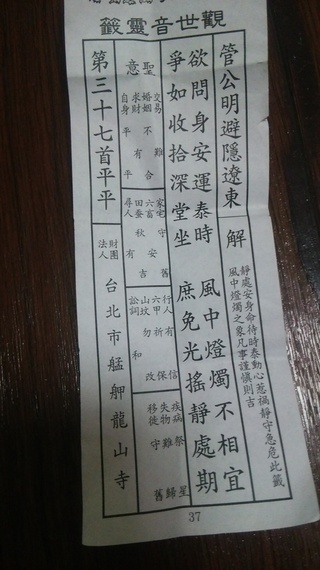 觀世音靈籤
管公明避隱遼東
解
靜處安身命待時泰動心惹禍靜守急危此籤
風中燈燭之象凡事謹慎則吉
欲問身安運泰時 風中燈燭不相宜
爭如收拾深堂坐 庶免光搖靜處期
聖意
交易 難
婚姻 不合
求財 有
自身 平平
家宅 守舊
六畜 安
田蚕 秋吉
尋人 有
行人 有信
六甲 祈保
山坟 勿改
訟詞 和
疾病 祭星
失物 難歸
移徙 守舊
第三十七首平平
財團
法人
台北市艋舺龍山寺
37